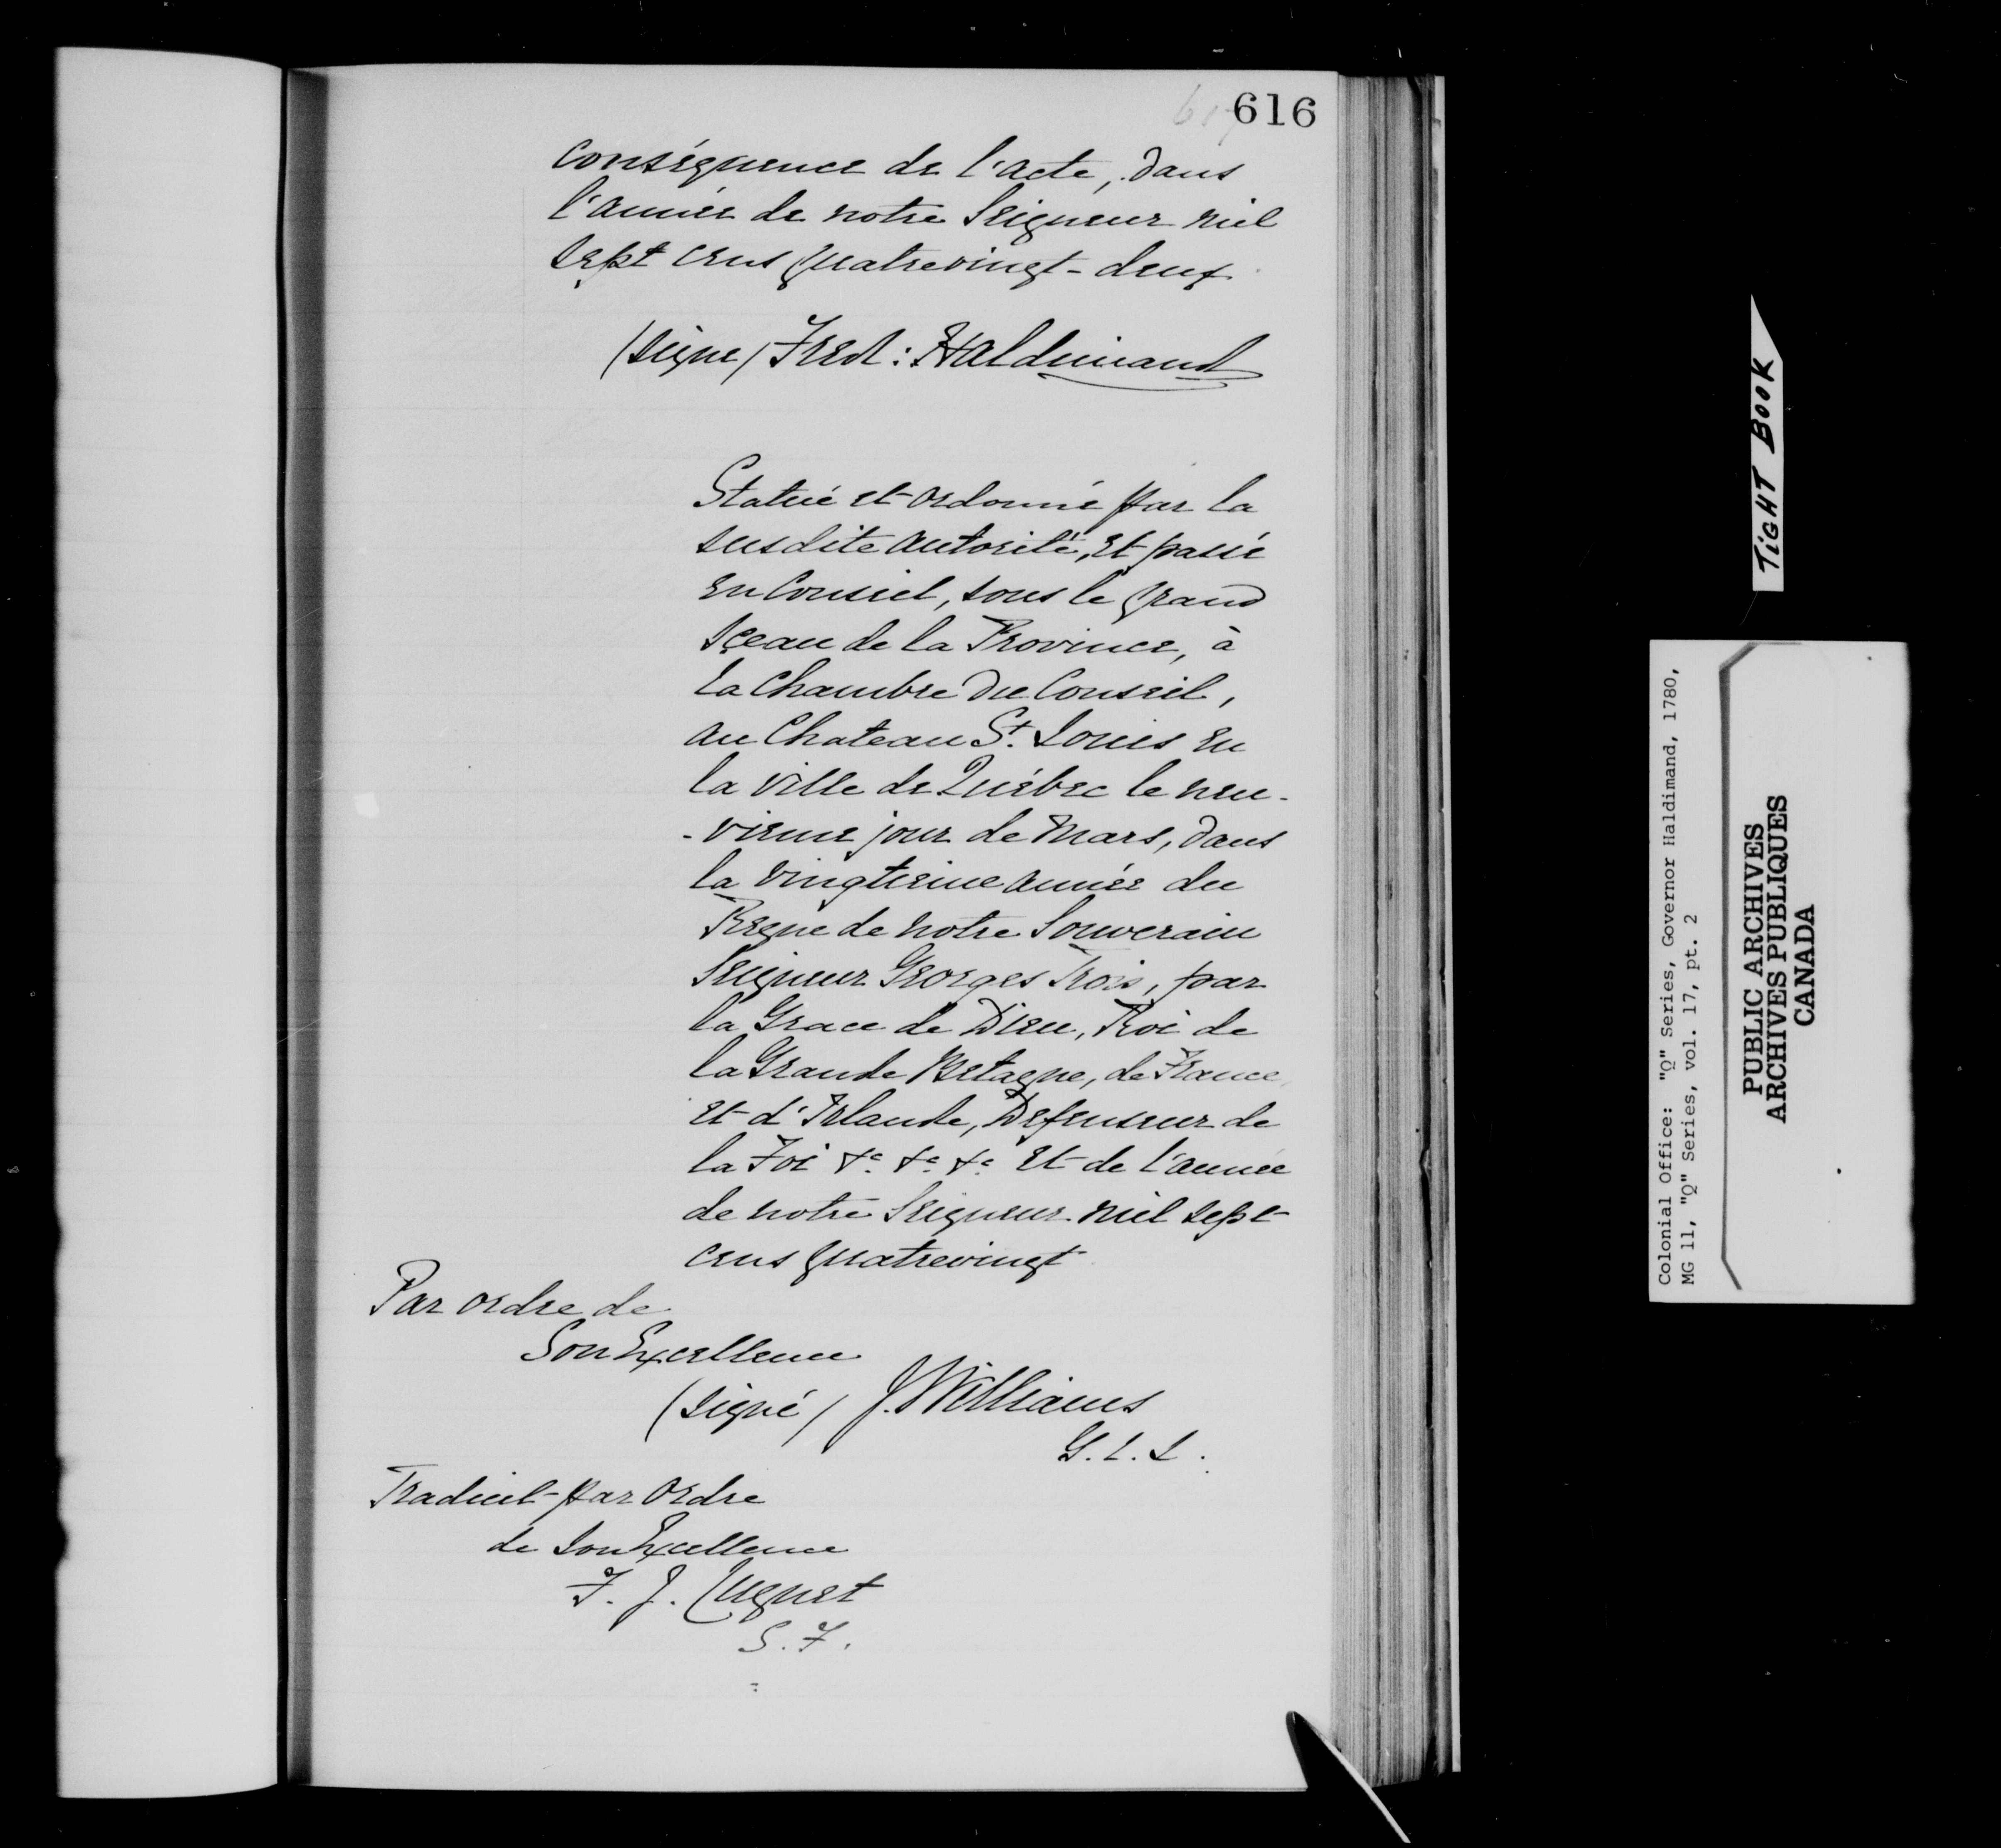 616
conséquence de l'acte, dans
l'année de notre Seigneur mil
sept cens quatrevingt-deux
(signé) Fred: Haldimand
Statué et ordonné par la
susdite autorité, et passé
en Conseil, sous le grand
Sçeau de la Province, à
la Chambre du Conseil,
au Chateau St. Louis en
la ville de Québec le neu-
-vieme jour de Mars, dans
la vingtieme année du
Regne de notre Souverain
Seigneur Georges Trois, par
la Grace de Dieu, Roi de
la Grande Bretagne, de France
et d'Irlande, Defenseur de
la Foi &c. &c. &c. et de l'année
de notre Seigneur mil sept
cens quatrevingt
Par ordre de
Son Excellence
(signé) J. Williams
G.L.L.
Traduit par ordre
de Son Excellence
F. J. Cugnet
S. F.
TIGHT BOOK
Colonial Office: "Q" Series, Governor Haldimand, 1780,
MG 11, "Q" Series, vol. 17, pt. 2
PUBLIC ARCHIVES
ARCHIVES PUBLIQUES
CANADA